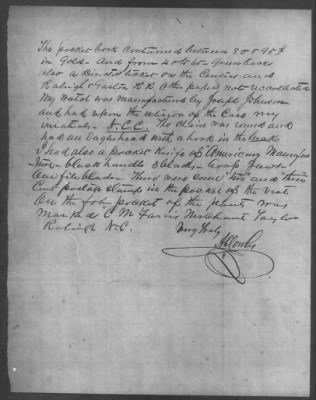 The pocket book contained between 80 & 95 $
in Gold - and from 40 to 60 Greenbacks
also a Season ticket on the and
Raleigh & Gaston R.R. Other papers not recollected
My Watch was manufactured by Joseph Johnson
and had upon the of the Case my
initials A.C.C. The chain was round and
had an Eagles head with a hook in the beak
I had also a pocket Knife of American Manufac
black handle 2 blades
One file blade - There were some two and three
Cent postage stamps in the pocket of the vest
On the fob pocket of the pants was
Marked C M Farris Merchant Taylor
Raleigh N.C.
Very truly
A C Cowles